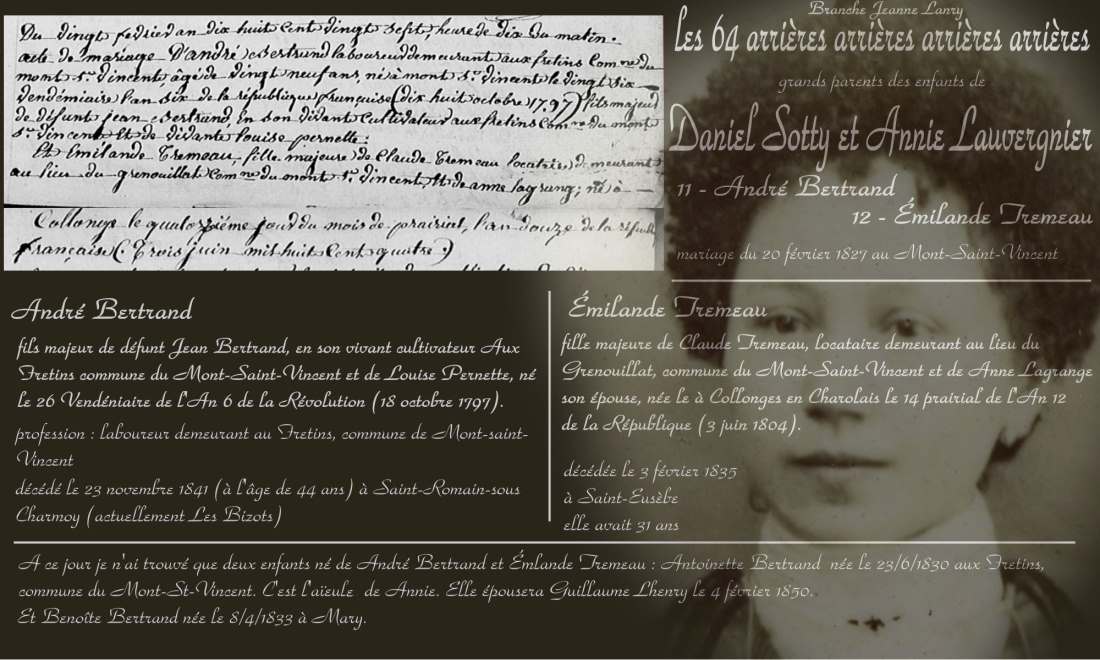 Du vingt fevrier an dix huit cent vingt sept, heure de dix du matin.
acte de mariage D'andré Bertrand laboureur demeurant aux fretins Com.ne du
mont s.t vincent, âgé de vingt neuf ans, né à mont s.t vincent le vingt six
vendémiaire l'an six de la république française (dix huit octobre 1797) fils majeur
de défunt jean Bertrand, en son vivant Cultivateur aux fretins Com.ne du mont
s.t vincent et de vivante louise pernette:
Et Emilande Tremeau, fille majeure de Claude Tremeau locataire demeurant
au lieu du grenouillat Com.ne du mont s.t vincent, et de anne lagrange; née à
Collonge le quatorzième jour du mois de prairial, l'an douze de la républ
française (Trois juin mil huit Cent quatre)
Branche Jeanne Lanry
les 64 arrières arrières arrières arrières
grands parents des enfants de
Daniel Sotty et Annie Lauvergnier
11 - André Bertrand
12 - Émilande Tremeau
mariage du 20 février 1827 au Mont-Saint-Vincent
André Bertrand
fils majeur de défunt Jean Bertrand, en son vivant cultivateur Aux
Fretins commune du Mont-Saint-Vincent et de Louise Pernette, né
le 26 Vendéniaire de l'An 6 de la Révolution (18 octobre 1797).
profession : laboureur demeurant au Fretins, commune de Mont-saint-
Vincent
décédé le 23 novembre 1841 (à l'âge de 44 ans) à Saint-Romain-sous
Charmoy (actuellement Les Bizots)
Émilande Tremeau
fille majeure de Claude Tremeau, locataire demeurant au lieu du
Grenouillat, commune du Mont-Saint-Vincent et de Anne Lagrange
son épouse, née le à Collonges en Charolais le 14 prairial de l'An 12
de la République (3 juin 1804).
décédée le 3 février 1835
à Saint-Eusèbe
elle avait 31 ans
A ce jour je n'ai trouvé que deux enfants né de André Bertrand et Émlande Tremeau : Antoinette Bertrand née le 23/6/1830 aux Fretins,
commune du Mont-St-Vincent. C'est l'aïeule de Annie. Elle épousera Guillaume Lhenry le 4 février 1850.
Et Benoîte Bertrand née le 8/4/1833 à Mary.